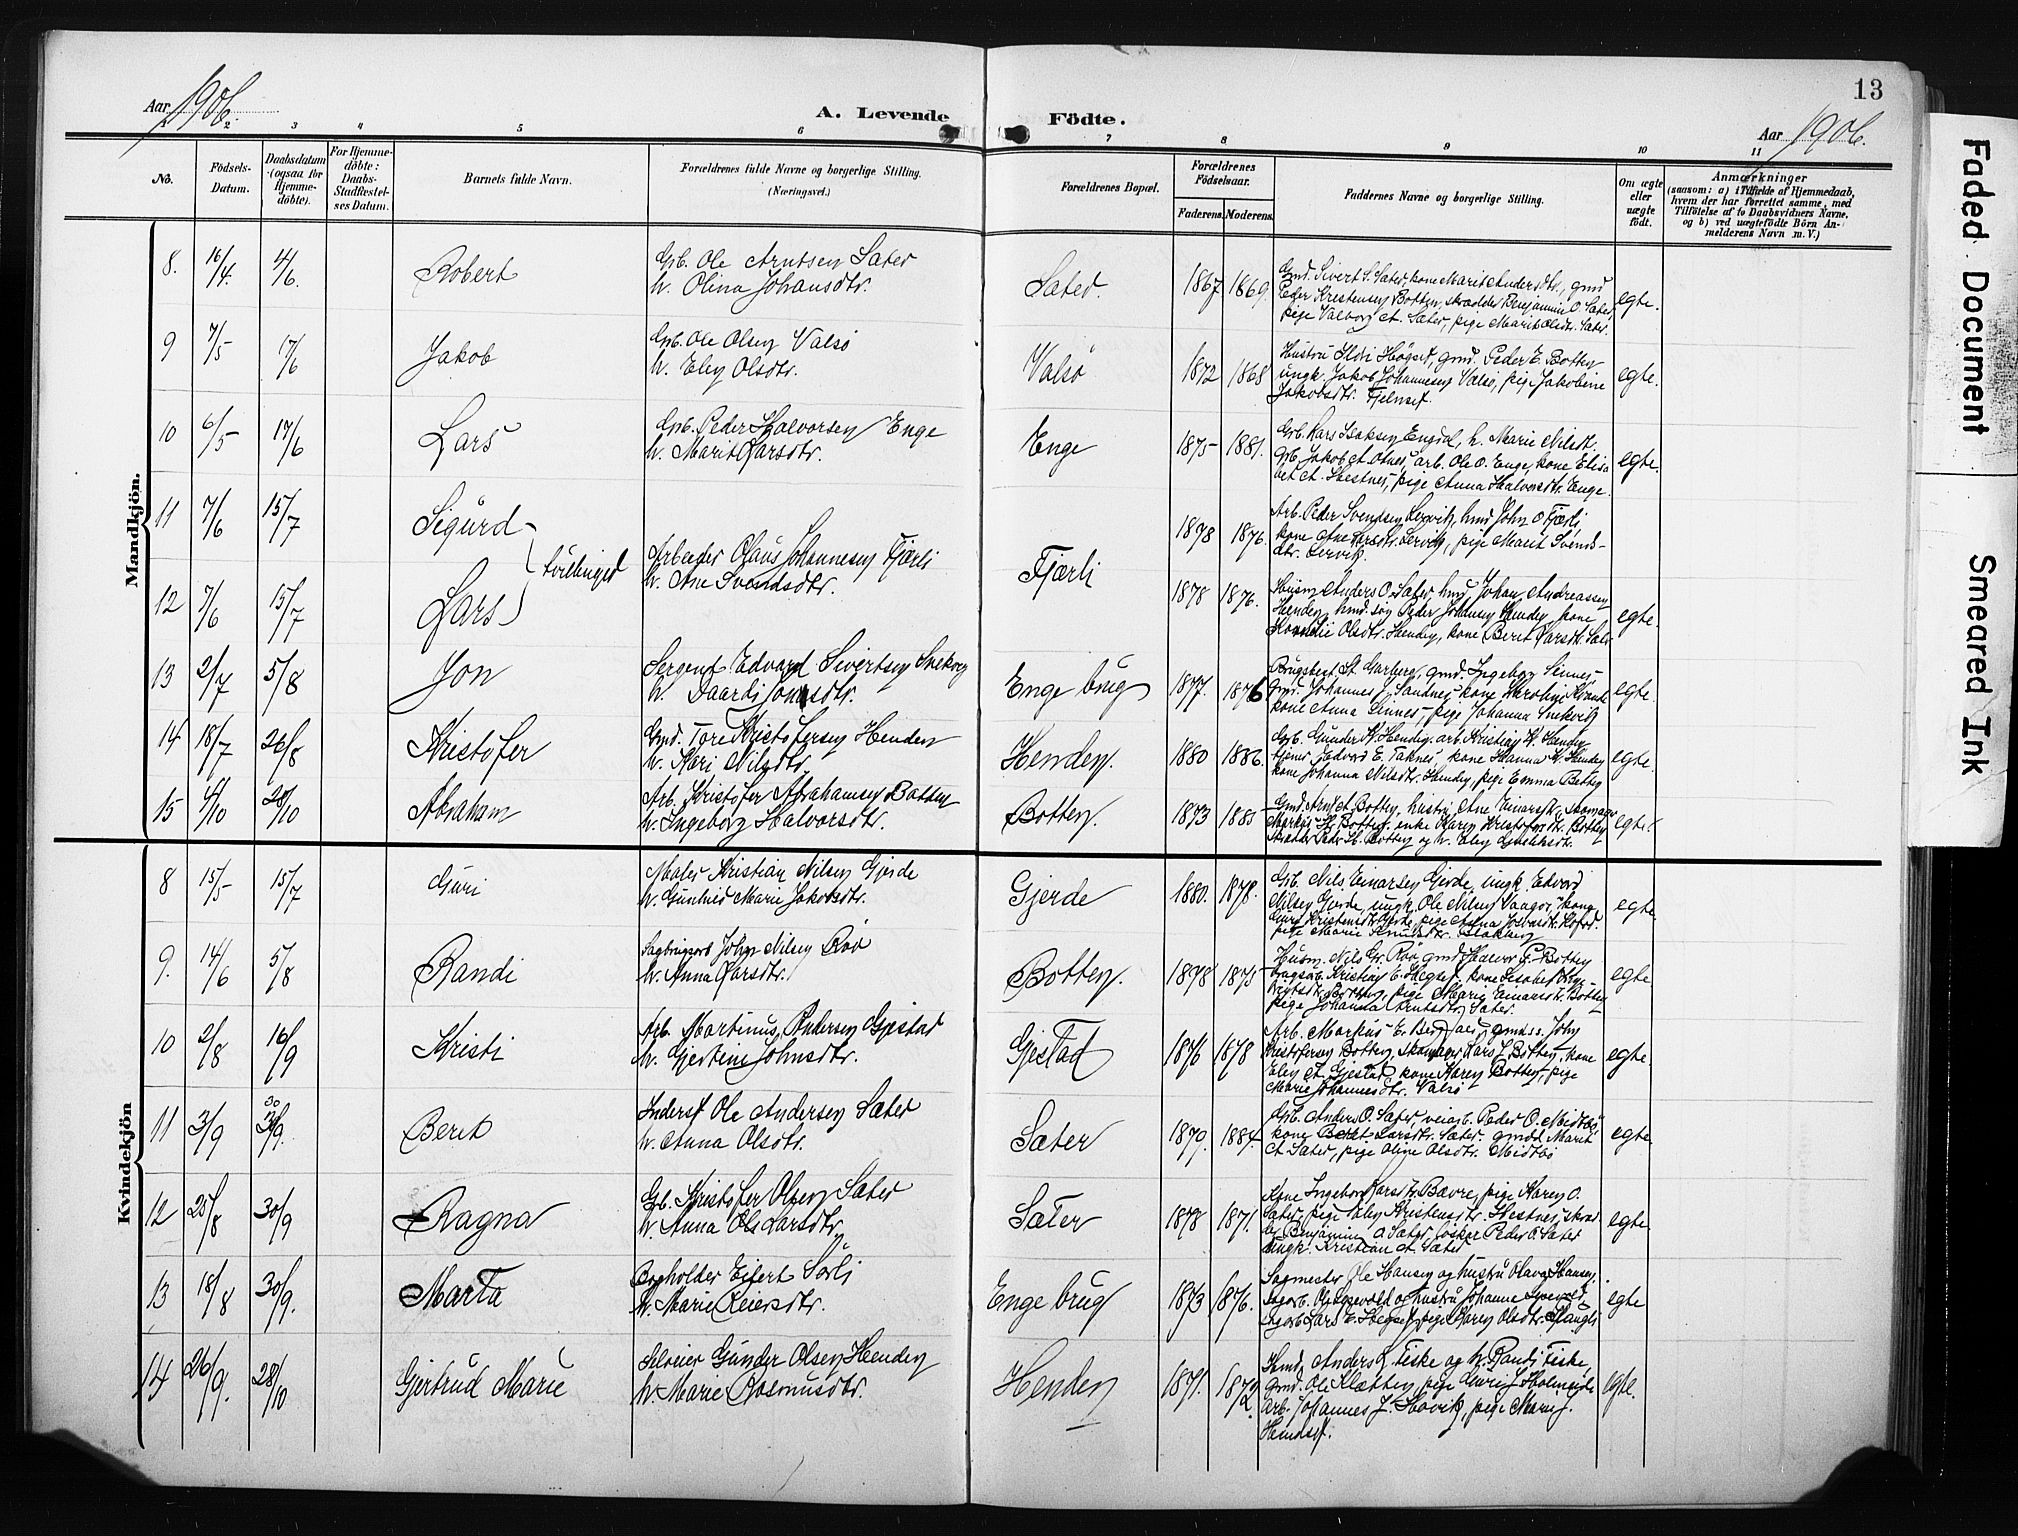 Aar 1906.
A. Levende Födte.
Aar 1906.
13
1 2 3 4 5 6 7 8 9 10 11
No.
Födsels-Datum.
Daabsdatum (ogsaa for Hjemmedöbte).
For Hjemmedöbte: Daabs-Stadfæstelses Datum.
Barnets fulde Navn.
Forældrenes fulde Navne og borgerlige Stilling. (Næringsvei.)
Forældrenes Bopæl.
Forældrenes Födselsaar.
Faderens. Moderens.
Faddernes Navne og borgerlige Stilling.
Om ægte eller uægte födt.
Anmærkninger
(saasom: a) i Tilfælde af Hjemmedaab, hvem der har forrettet samme, med Tilföielse af to Daabsvidners Navne, og b) ved uægtefödte Börn Anmelderens Navn m. V.)
Mandkjön.
8. 16/4. 4/6. Robert
Grb. Ole Arntsen Sæter
h. Olina Johansdtr.
Sæter. 1867 1869.
Gmd. Sivert S. Sæter, kone Marit Andersdtr., gmd
Peder Kristensen Botten, skrædder Benjamin O. Sæter,
pige Valborg A. Sæter, pige Marit Olsdtr. Sæter.
egte.
9 7/5 17/6 Jakob
Grb. Ole Olsen Valsö
h. Elen Olsdtr.
Valsö 1872 1868
Hustru Ildri Högset, gmd. Peder E. Botten
ungk. Jakob Johannesen Valsö, pige Jakobine
Jakobsdtr. Fjelnset.
egte.
10 6/5 17/6 Lars
Grb. Peder Halvorsen Enge
h. Marit Larsdtr.
Enge 1875 1881.
Grb. Lars Isaksen Engdal, h. Marie Nilsdtr,
Grb. Jakob A. Otnes, arb. Ole O. Enge, kone Elisa
bet A. Hestnes, pige Anna Halvorsdtr. Enge.
egte.
11 7/6 15/7 Sigurd
12 7/6 15/7 Lars
tvillinger
Arbeider Olaus Johannesen Fjærli
h. Ane Svendsdtr.
Fjærli
1878 1876.
Arb. Peder Svendsen Lervik, hmd John O Fjærli,
kone Ane Larsdtr. Lervik, pige Marit Svends-
dtr. Lervik.
1878 1876.
Husm Anders O. Sæter, hmd Johan Andreassen
Henden, hmd. søn Peder Johansen Henden, kone
Olsdtr. Henden, kone Berit Larsdtr. Sæter
egte.
13 2/7 5/8 Jon
Sergent Edvard Sivertsen Snekvig
h. Jonsdtr.
Enge brug 1877. 1876
Brugsbest. St. Garberg, gmd. Ingeborg Sinnes,
Grd. Johannes J. Sandnes, kone Karoline Kvande
kone Anna Sinnes, pige Johanna Snekvik
egte.
14 18/7 26/8 Kristofer
Gmd. Tore Kristofersen Henden
h. Kari Nilsdtr.
Henden. 1880 1886.
Grb. Gunder K. Henden, arb. Kristian K. Henden
tjener Edvard E. Taknes, kone Hanna K. Henden
kone Johanna Nilsdtr. Henden, pige Emma Botten
egte.
15 4/10 28/10 Abraham
Arb. Kristofer Abrahamsen Botten
h. Ingeborg Halvorsdtr.
Botten. 1873 1885
Gmd. Arnt A. Botten, hustru Ane Einarsdtr, skomager
Markus H. Botten, enke Karen Kristofersdtr. Botten
Skrædder Peder H. Botten og h. Elen
egte.
Kvindekjön
8 15/5 15/7 Guri
Maler Kristian Nilsen Gjerde
h. Gunhild Marie Jakobsdtr.
Gjerde 1880. 1878.
Grb. Nils Einarsen Gjerde, ungk. Edvard
Nilsen Gjerde, ungk. Ole Nilsen Vaagos, kone
Guri Kristensdtr. Gjerde, pige Anna
pige Marie
egte.
9. 14/6 5/8 Randi
Sagbrugsarb John Nilsen Röö
h. Anna Larsdtr.
Botten. 1878 1875
Husm. Nils Gr. Röö gmd Halvor G. Botten
Kristian E. Hegset, kone Lisabet
Botten, pige Marie Einarsdtr. Botten
pige Johanna Arntsdtr. Sæter.
egte
10 2/8 16/9 Kristi
Arb. Martinus Andersen Gjestad
h. Gjertine Johnsdtr.
Gjestad 1876 1878
Arb. Markus E. gmdss. John
Kristofersen Botten, skomager Lars J. Botten, kone
Elen A. Gjestad, kone Karen Botten, pige
Marie Johannesdtr. Valsö
egte.
11 3/9 30/9. Berit
Inderst Ole Andersen Sæter
h. Anna Olsdtr.
Sæter 1879. 1884.
Grb. Anders O. Sæter, veiarb. Peder O. Midtöö
kone Beret Larsdtr. Sæter, gmdd. Marit
A. Sæter, pige Oline Olsdtr. Midtöö
egte
12 25/8 30/9 Ragna
Gb. Kristofer Olsen Sæter
h. Anna Ole Larsdtr.
Sæter 1878 1871.
Kone Ingebor Larsdtr. Bævre, pige Karen O.
Sæter, pige Elen Kristensdtr. Hestnes, skræd
der Benjamin O Sæter, fisker Peder O. Sæter
ungk. Kristian A. Sæter
egte
13 18/8 30/9. Marta
Bogholder Eifert Sörli
h. Marie Reiersdtr.
Enge brug 1873 1876.
Sagmester Ole Hansen og hustru Olava Hansen,
Sagarb. Ole og hustru Johanne
Sagarb Lars E. Hegset, pige Karen Olsdtr.
egte
14 26/9. 28/10 Gjertrud Marie
Selveier Gunder Olsen Henden
h. Marie Rasmusdtr.
Henden 1871. 1872.
Hmd. Anders L. Fiske og h. Randi Fiske,
gmd. Ole Klætten, pige Guri J. Holmeide
arb. Johannes J. Skovik, pige Maren J.
Hendset.
egte.
Faded Document
Smeared Ink